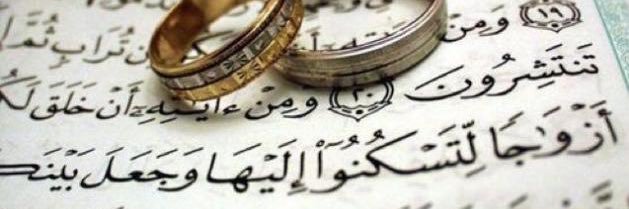 ١٩ وَمِنْ تُرَابٍ ثُمَّ
تَنتَشِرُونَ ٢٠ وَمِنْ ءَايَـٰتِهِۦٓ أَنْ خَلَقَ لَكُ
أَزْوَٰجًا لِّتَسْكُنُوٓا۟ إِلَيْهَا وَجَعَلَ بَيْنَكُ